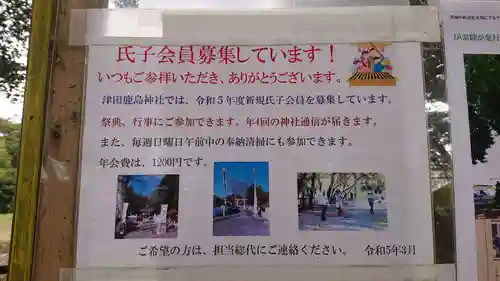 氏子会員募集しています!
いつもご参拝いただき、ありがとうございます。
津田鹿島神社では、令和5年度新規氏子会員を募集しています。
祭典、行事にご参加できます。年4回の神社通信が届きます。
また、毎週日曜日午前中の奉納清掃にも参加できます。
年会費は、1200円です。
ご希望の方は、担当総代にご連絡ください。 令和5年3月
JA常陸が発行